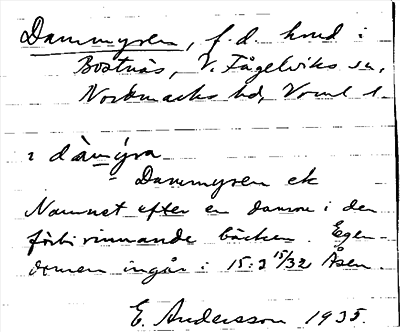 Dammyren, f.d. hmd i
Bostnäs, V. Fågelviks sn,
Nordmarks hd, Värml l.
i dàmýra
Dammyren ek
Namnet efter en damm i den
förbirinnande bäcken. Egen-
domen ingår i 15:3 15/32 Åsen
E. Andersson 1935.